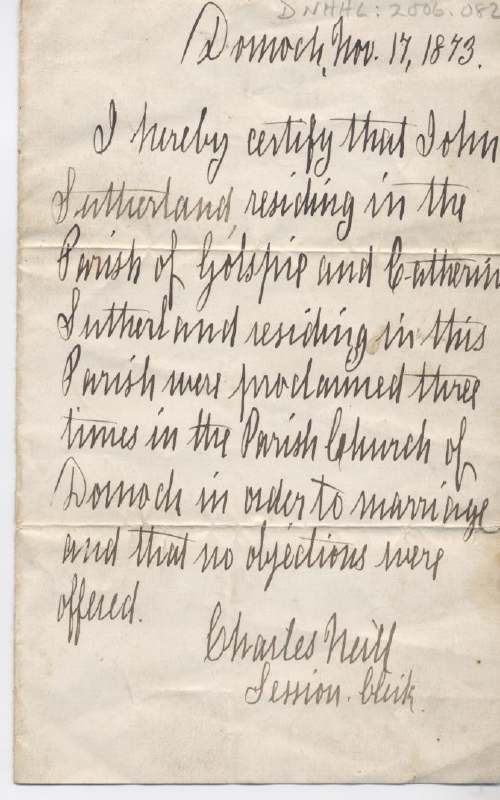 DNHHL: 2006.082
Dornoch, Nov. 17, 1873.
I hereby certify that John
Sutherland, residing in the
Parish of Golspie and Catherin
Sutherland residing in this
Parish were proclaimed three
times in the Parish Church of
Dornoch in order to marriage
and that no objections were
offered.
Charles Neill
Session. Clerk.